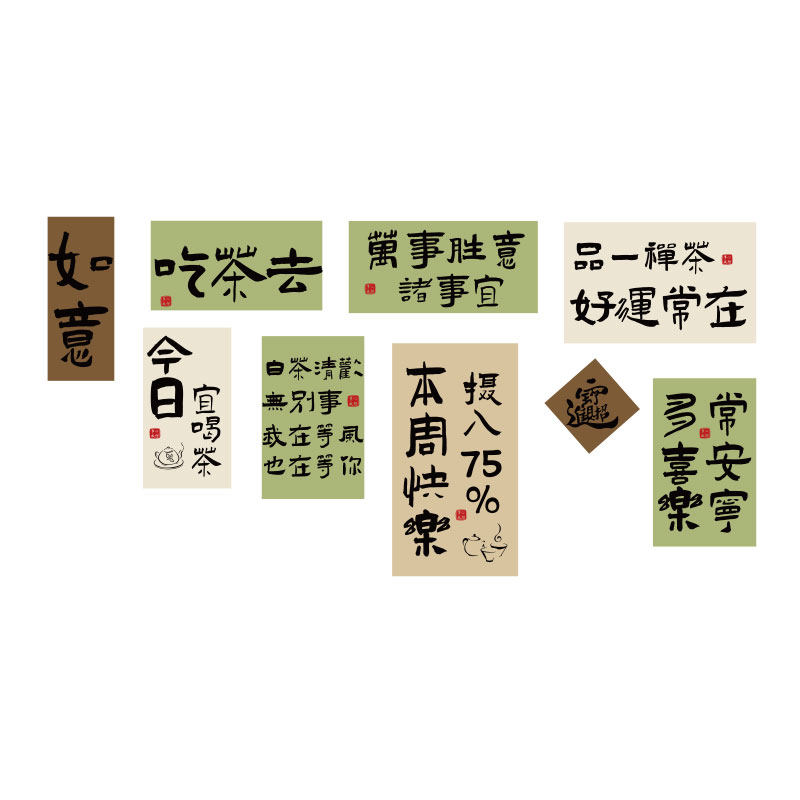 如意
吃茶去
萬事胜意
諸事宜
品一禪茶
好運常在
今日
宜喝茶
白茶清歡
無別事
我在等風
也在等你
本周快樂
摄入75%
招財進寶
多喜樂
常安寧